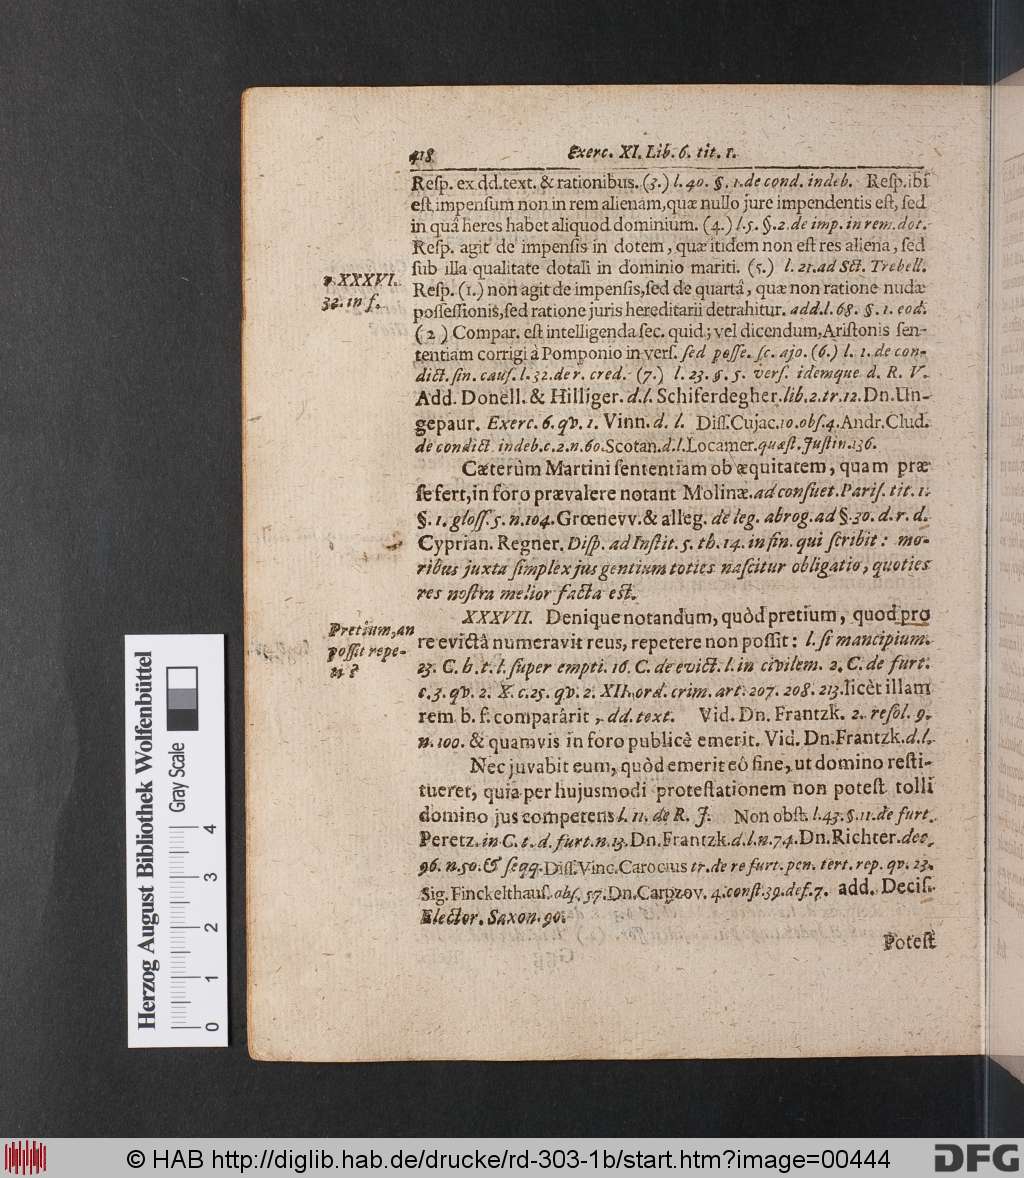 418 Exerc. XI. Lib. 6. tit. 1.
Reſp. ex dd. text. & rationibus. (3.) l. 40. §. 1. de cond. indeb. Reſp. ibi
eſt impenſum non in rem alienam, quæ nullo jure impendentis eſt, ſed
in quâ heres habet aliquod dominium. (4.) l. 5. §. 2. de imp. in rem. dot.
Reſp. agit de impenſis in dotem, quæ itidem non eſt res aliena, ſed
ſub illa qualitate dotali in dominio mariti. (5.) l. 21. ad Sct. Trebell.
XXXVI.
32. in f.
Reſp. (1.) non agit de impenſis, ſed de quartâ, quæ non ratione nudæ
poſſeſſionis, ſed ratione juris hereditarii detrahitur. add. l. 68. §. 1. eod.
(2) Compar. eſt intelligenda ſec. quid; vel dicendum, Ariſtonis ſen-
tentiam corrigi à Pomponio in verſ. ſed poſſe. ſc. ajo. (6.) l. 1. de con-
dict. ſin. cauſ. l. 32. de r. cred. (7.) l. 23. §. 5. verſ. idemque d. R. V.
Add. Donell. & Hilliger. d. l. Schiferdegher. lib. 2. tr. 12. Dn. Un-
gepaur. Exerc. 6. qv. 1. Vinn. d. l. Diſſ. Cujac. 10. obſ. 4. Andr. Clud.
de condict. indeb. c. 2. n. 60. Scotan. d. l. Locamer. quæſt. Juſtin. 136.
Cæterùm Martini ſententiam ob æquitatem, quam præ
ſe fert, in foro prævalere notant Molinæ. ad conſuet. Pariſ. tit. 1.
§. 1. gloſſ. 5. n. 104. Grœnevv. & alleg. de leg. abrog. ad §. 30. d. r. d.
Cyprian. Regner. Diſp. ad Inſtit. 5. th. 14. in fin. qui ſcribit: mo-
ribus juxta ſimplex jus gentium toties naſcitur obligatio, quoties
res noſtra melior facta est.
Pretium, an
poſſit repe-
ti?
XXXVII. Denique notandum, quòd pretium, quod pro
re evictâ numeravit reus, repetere non poſſit: l. ſi mancipium.
23. C. h. t. l. ſuper empti. 16. C. de evict. l. in civilem. 2. C. de furt.
c. 3. qv. 2. X. c. 25. qv. 2. XII. ord. crim. art. 207. 208. 213. licèt illam
rem b. f. comparârit, dd. text. Vid. Dn. Frantzk. 2. reſol. 9.
n. 100. & quamvis in foro publicè emerit. Vid. Dn. Frantzk. d. l.
Nec juvabit eum, quòd emerit eò fine, ut domino reſti-
tueret, quia per hujusmodi proteſtationem non poteſt tolli
domino jus competens l. 11. de R. J. Non obſt. l. 43. §. 11. de furt.
Peretz. in C. t. d. furt. n. 13. Dn. Frantzk. d. l. n. 74. Dn. Richter. dec.
96. n. 50. & ſeqq. Diſſ. Vinc. Carocius tr. de re furt. pen. tert. rep. qv. 23.
Sig. Finckelthauſ. obſ. 57. Dn. Carpzov. 4. conſt. 39. def. 7. add. Deciſ.
Elector. Saxon. 90.
Poteſt
Herzog August Bibliothek Wolfenbüttel
Gray Scale
0 1 2 3 4
© HAB http://diglib.hab.de/drucke/rd-303-1b/start.htm?image=00444
DFG